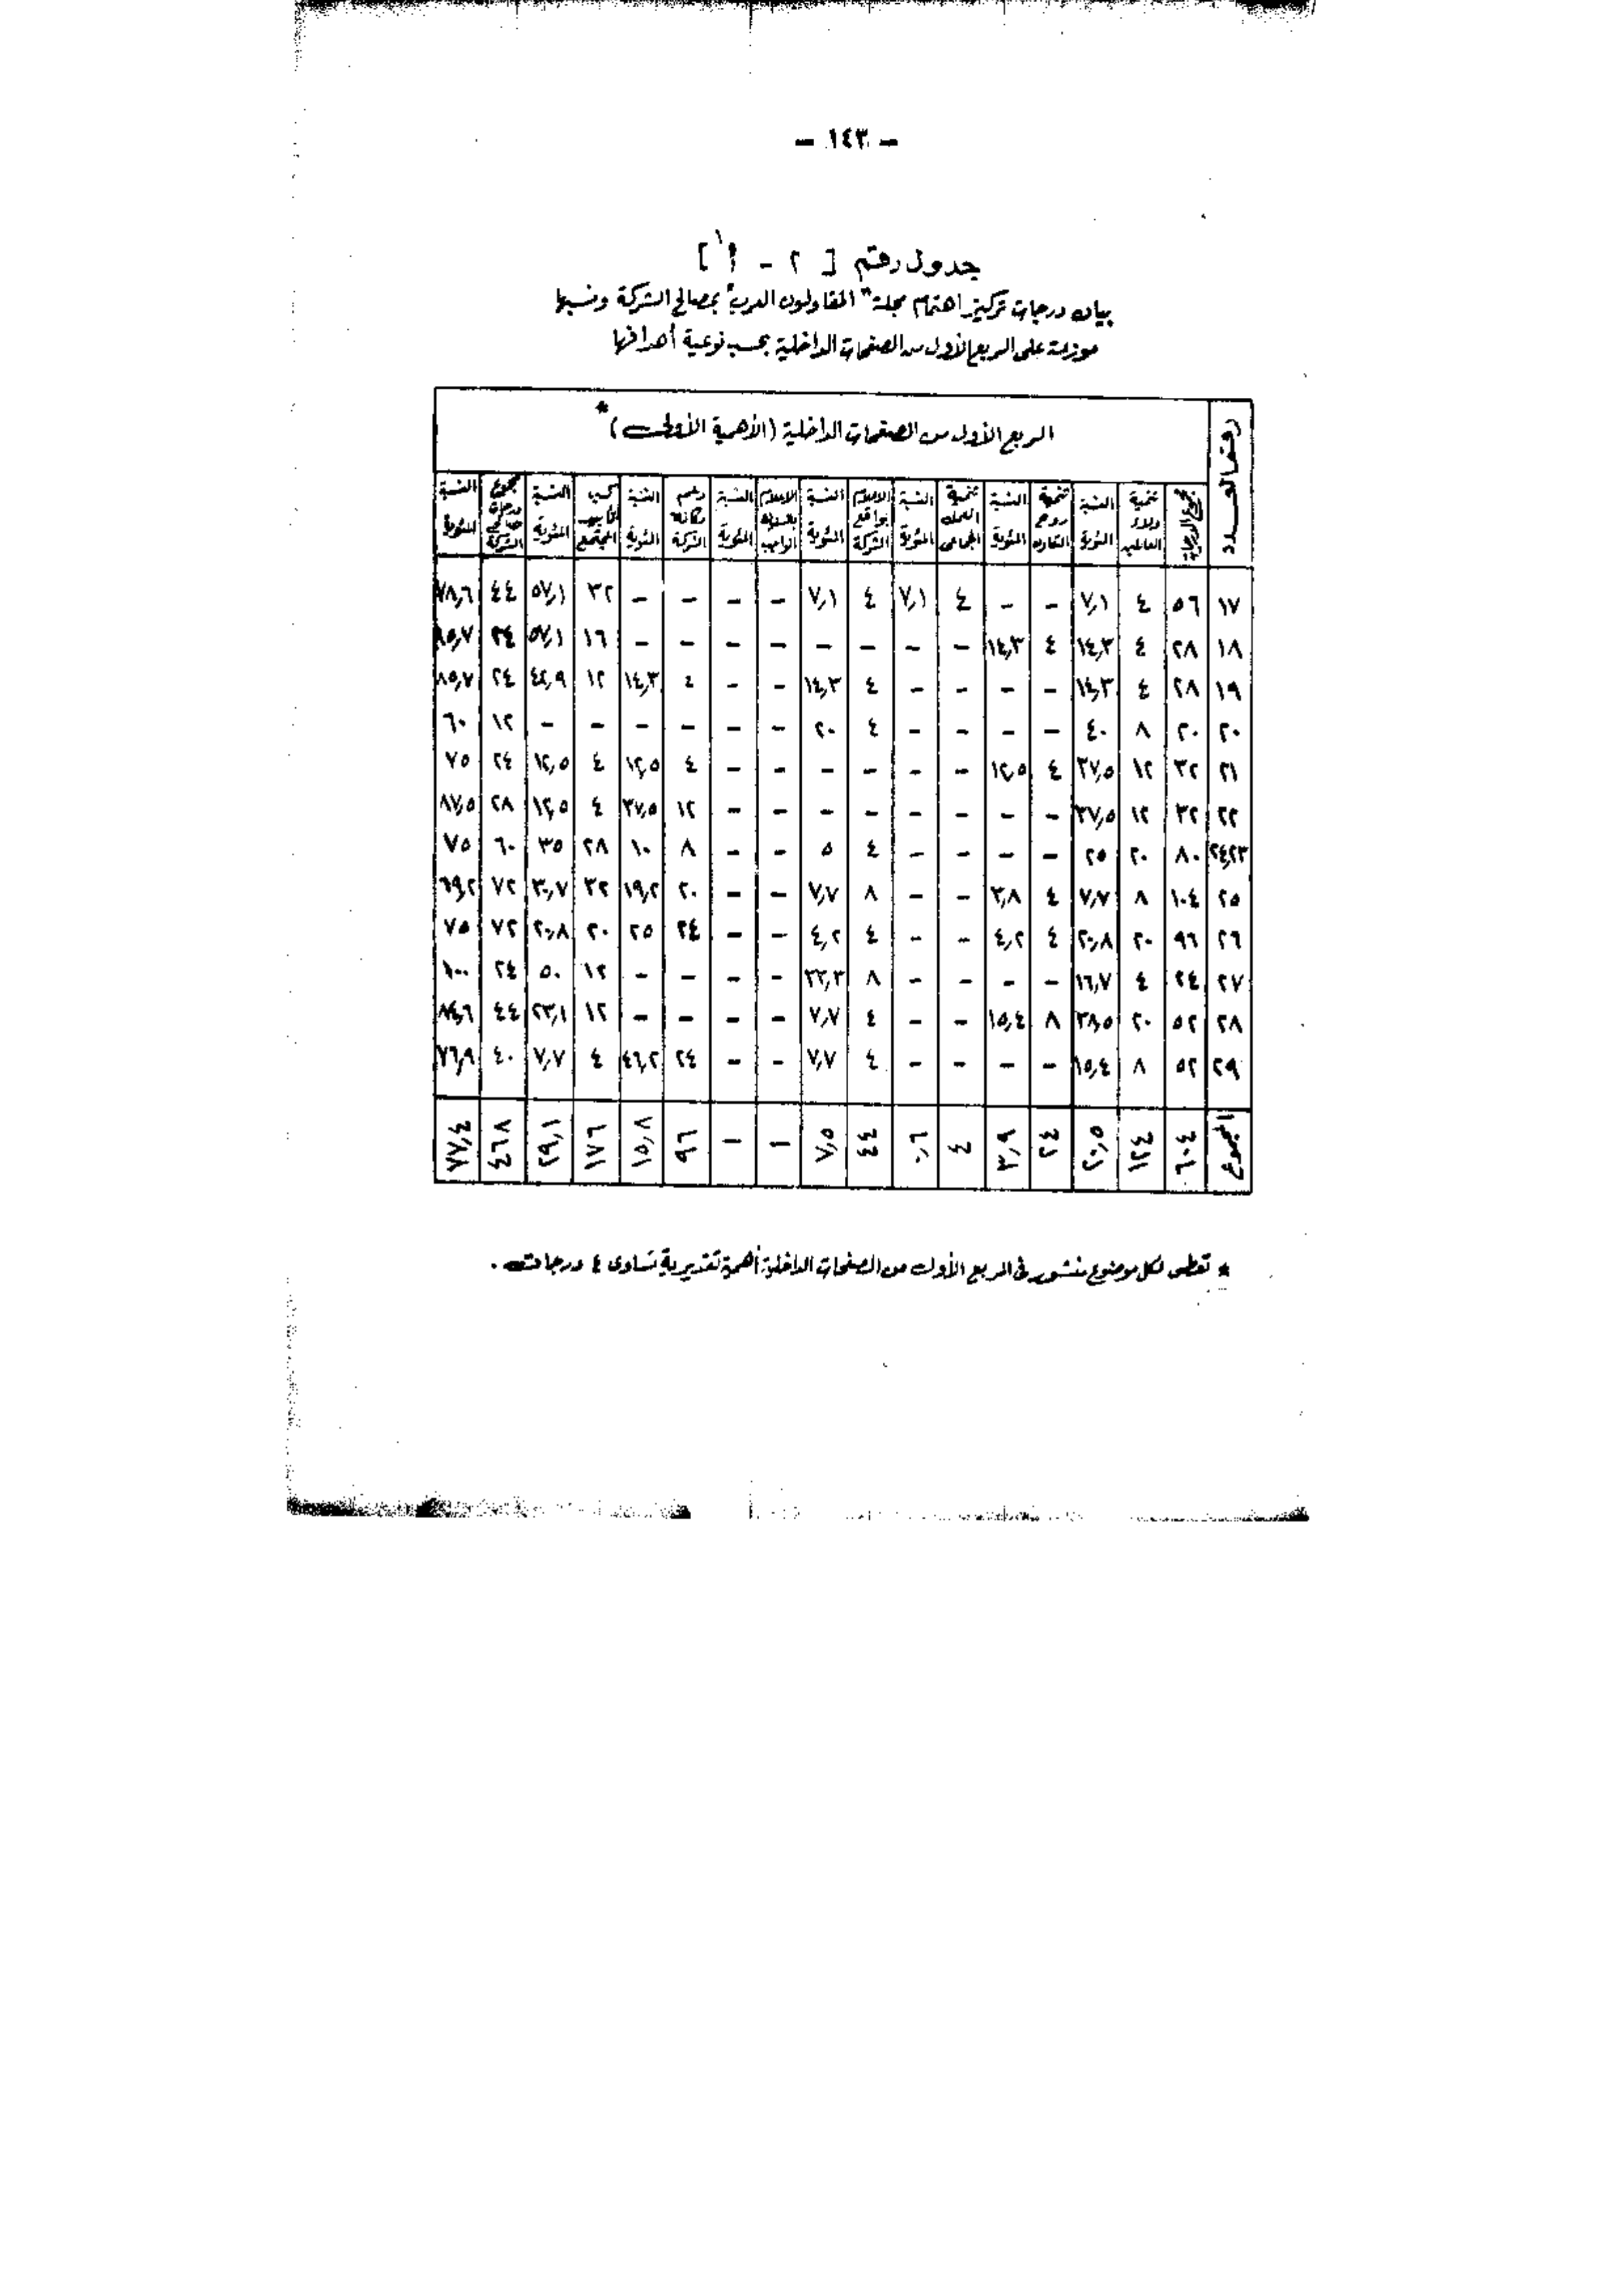 – ١٤٣ –
جدول رقم [ ٢ – أ١ ]
بيان درجات تركيز اهتمام مجلة "المقاولون العرب" بمصالح الشركة ونسبها
موزعة على الربع الأول من الصفحات الداخلية بحسب نوعية أهدافها
رقم العدد الربع الأول من الصفحات الداخلية (الأهمية الأولى) *
مجموع الدرجات | تنمية ولاء العاملين | النسبة المئوية | تنمية روح التعاون | النسبة المئوية | تنمية العمل الجماعى | النسبة المئوية | الإعلام بواقع الشركة | النسبة المئوية | الإعلام بالسلوك الواجب | النسبة المئوية | دعم مكانة الشركة | النسبة المئوية | كسب تأييد المجتمع | النسبة المئوية | مجموع درجات مصالح الشركة | النسبة المئوية
١٧ ٥٦ ٤ ٧,١ – – ٤ ٧,١ ٤ ٧,١ – – – – ٣٢ ٥٧,١ ٤٤ ٧٨,٦
١٨ ٢٨ ٤ ١٤,٣ ٤ ١٤,٣ – – – – – – – – ١٦ ٥٧,١ ٢٤ ٨٥,٧
١٩ ٢٨ ٤ ١٤,٣ – – – – ٤ ١٤,٣ – – ٤ ١٤,٣ ١٢ ٤٢,٩ ٢٤ ٨٥,٧
٢٠ ٢٠ ٨ ٤٠ – – – – ٤ ٢٠ – – – – – – ١٢ ٦٠
٢١ ٣٢ ١٢ ٣٧,٥ ٤ ١٢,٥ – – – – – – ٤ ١٢,٥ ٤ ١٢,٥ ٢٤ ٧٥
٢٢ ٣٢ ١٢ ٣٧,٥ – – – – – – – – ١٢ ٣٧,٥ ٤ ١٢,٥ ٢٨ ٨٧,٥
٢٤,٢٣ ٨٠ ٢٠ ٢٥ – – – – ٤ ٥ – – ٨ ١٠ ٢٨ ٣٥ ٦٠ ٧٥
٢٥ ١٠٤ ٨ ٧,٧ ٤ ٣,٨ – – ٨ ٧,٧ – – ٢٠ ١٩,٢ ٣٢ ٣٠,٧ ٧٢ ٦٩,٢
٢٦ ٩٦ ٢٠ ٢٠,٨ ٤ ٤,٢ – – ٤ ٤,٢ – – ٢٤ ٢٥ ٢٠ ٢٠,٨ ٧٢ ٧٥
٢٧ ٢٤ ٤ ١٦,٧ – – – – ٨ ٣٣,٣ – – – – ١٢ ٥٠ ٢٤ ١٠٠
٢٨ ٥٢ ٢٠ ٣٨,٥ ٨ ١٥,٤ – – ٤ ٧,٧ – – – – ١٢ ٢٣,١ ٤٤ ٨٤,٦
٢٩ ٥٢ ٨ ١٥,٤ – – – – ٤ ٧,٧ – – ٢٤ ٤٦,٢ ٤ ٧,٧ ٤٠ ٧٦,٩
المجموع ٦٠٤ ١٢٤ ٢٠,٥ ٢٤ ٣,٩ ٤ ٠,٦ ٤٤ ٧,٥ – – ٩٦ ١٥,٨ ١٧٦ ٢٩,١ ٤٦٨ ٧٧,٤
* تعطى لكل موضوع منشور فى الربع الأول من الصفحات الداخلية أهمية تقديرية تساوى ٤ درجات .